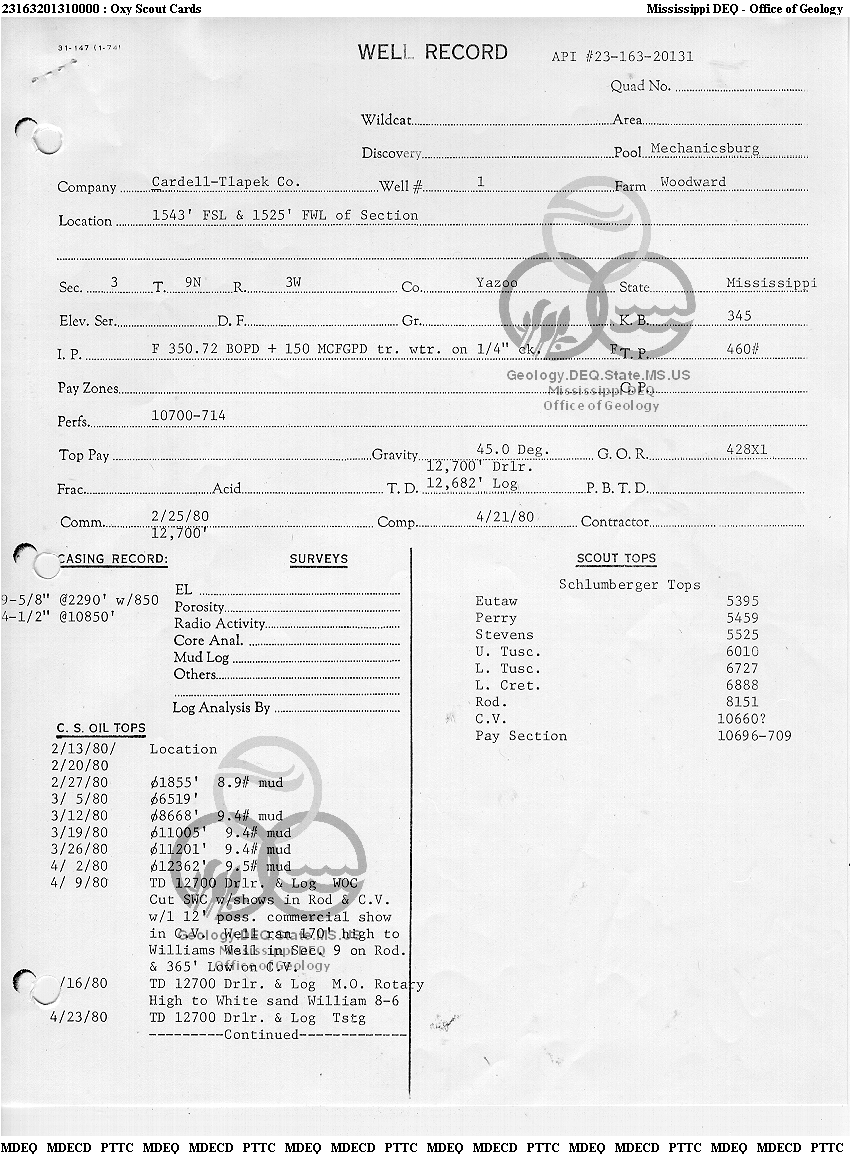 23163201310000 : Oxy Scout Cards Mississippi DEQ - Office of Geology
31-147 (1-74)
WELL RECORD API #23-163-20131
Quad No.
Wildcat Area
Discovery Pool Mechanicsburg
Company Cardell-Tlapek Co. Well # 1 Farm Woodward
Location 1543' FSL & 1525' FWL of Section
Sec. 3 T. 9N R. 3W Co. Yazoo State Mississippi
Elev. Ser. D. F. Gr. K. B. 345
I. P. F 350.72 BOPD + 150 MCFGPD tr. wtr. on 1/4" ck. F T. P. 460#
Geology.DEQ.State.MS.US
Pay Zones C. P.
Mississippi DEQ
Office of Geology
Perfs. 10700-714
Top Pay Gravity 45.0 Deg. G. O. R. 428X1
12,700' Drlr.
Frac. Acid T. D. 12,682' Log P. B. T. D.
Comm. 2/25/80 Comp. 4/21/80 Contractor
12,700'
CASING RECORD: SURVEYS SCOUT TOPS
9-5/8" @2290' w/850
4-1/2" @10850'
EL
Porosity
Radio Activity
Core Anal.
Mud Log
Others
Log Analysis By
Schlumberger Tops
Eutaw 5395
Perry 5459
Stevens 5525
U. Tusc. 6010
L. Tusc. 6727
L. Cret. 6888
Rod. 8151
C.V. 10660?
Pay Section 10696-709
C. S. OIL TOPS
2/13/80/ Location
2/20/80
2/27/80 ø1855' 8.9# mud
3/ 5/80 ø6519'
3/12/80 ø8668' 9.4# mud
3/19/80 ø11005' 9.4# mud
3/26/80 ø11201' 9.4# mud
4/ 2/80 ø12362' 9.5# mud
4/ 9/80 TD 12700 Drlr. & Log WOC
Cut SWC w/shows in Rod & C.V.
w/1 12' poss. commercial show
in C.V. Well ran 170' high to
Geology.DEQ.State.MS.US
Williams Well in Sec. 9 on Rod.
Mississippi DEQ
& 365' Low on C.V.
Office of Geology
/16/80 TD 12700 Drlr. & Log M.O. Rotary
High to White sand William 8-6
4/23/80 TD 12700 Drlr. & Log Tstg
---------Continued-------------
MDEQ MDECD PTTC MDEQ MDECD PTTC MDEQ MDECD PTTC MDEQ MDECD PTTC MDEQ MDECD PTTC MDEQ MDECD PTTC